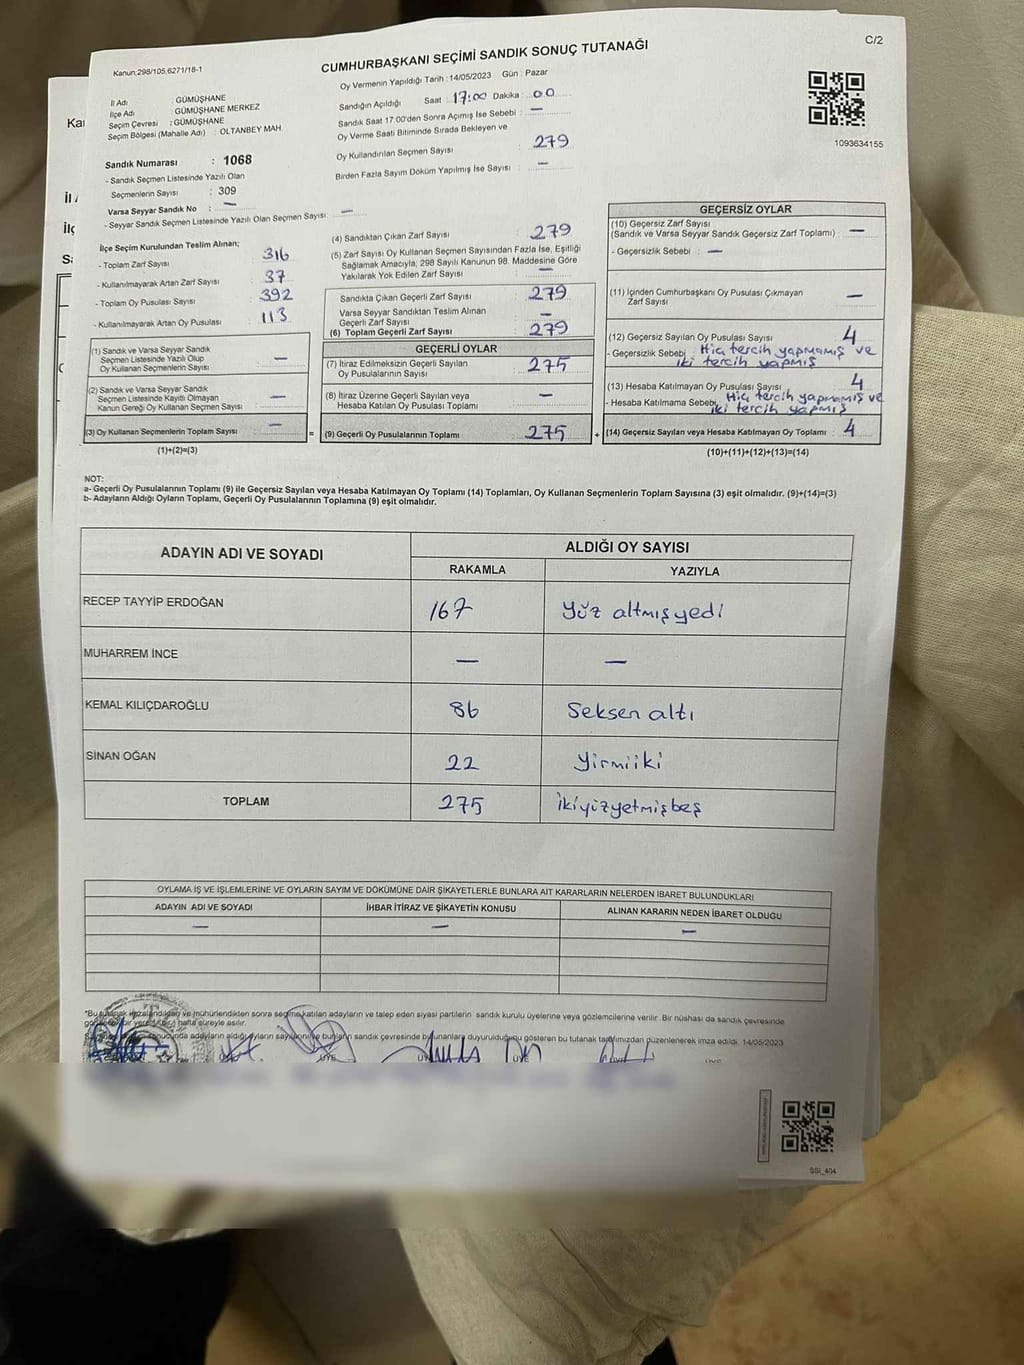 Kanun,298/105,6271/18-1
CUMHURBAŞKANI SEÇİMİ SANDIK SONUÇ TUTANAĞI
C/2
İl Adı : GÜMÜŞHANE
İlçe Adı : GÜMÜŞHANE MERKEZ
Seçim Çevresi : GÜMÜŞHANE
Seçim Bölgesi (Mahalle Adı) : OLTANBEY MAH
Sandık Numarası : 1068
- Sandık Seçmen Listesinde Yazılı Olan
Seçmenlerin Sayısı : 309
Varsa Seyyar Sandık No : —
- Seyyar Sandık Seçmen Listesinde Yazılı Olan Seçmen Sayısı : —
Oy Vermenin Yapıldığı Tarih : 14/05/2023 Gün : Pazar
Sandığın Açıldığı Saat : 17:00 Dakika : 00
Sandık Saat 17:00'den Sonra Açımış İse Sebebi : —
Oy Verme Saati Bitiminde Sırada Bekleyen ve
Oy Kullandırılan Seçmen Sayısı : 279
Birden Fazla Sayım Döküm Yapılmış İse Sayısı : —
1093634155
İlçe Seçim Kurulundan Teslim Alınan;
- Toplam Zarf Sayısı : 316
- Kullanılmayarak Artan Zarf Sayısı : 37
- Toplam Oy Pusulası Sayısı : 392
- Kullanılmayarak Artan Oy Pusulası : 113
(1) Sandık ve Varsa Seyyar Sandık
Seçmen Listesinde Yazılı Olup
Oy Kullanan Seçmenlerin Sayısı : —
(2) Sandık ve Varsa Seyyar Sandık
Seçmen Listesinde Kayıtlı Olmayan
Kanun Gereği Oy Kullanan Seçmen Sayısı : —
(3) Oy Kullanan Seçmenlerin Toplam Sayısı : —
(1)+(2)=(3)
(4) Sandıktan Çıkan Zarf Sayısı : 279
(5) Zarf Sayısı Oy Kullanan Seçmen Sayısından Fazla İse, Eşitliği
Sağlamak Amacıyla; 298 Sayılı Kanunun 98. Maddesine Göre
Yakılarak Yok Edilen Zarf Sayısı : —
Sandıkta Çıkan Geçerli Zarf Sayısı : 279
Varsa Seyyar Sandıktan Teslim Alınan
Geçerli Zarf Sayısı : —
(6) Toplam Geçerli Zarf Sayısı : 279
GEÇERLİ OYLAR
(7) İtiraz Edilmeksizin Geçerli Sayılan
Oy Pusulalarının Sayısı : 275
(8) İtiraz Üzerine Geçerli Sayılan veya
Hesaba Katılan Oy Pusulası Toplamı : —
= (9) Geçerli Oy Pusulalarının Toplamı : 275
GEÇERSİZ OYLAR
(10) Geçersiz Zarf Sayısı
(Sandık ve Varsa Seyyar Sandık Geçersiz Zarf Toplamı) : —
- Geçersizlik Sebebi : —
(11) İçinden Cumhurbaşkanı Oy Pusulası Çıkmayan
Zarf Sayısı : —
(12) Geçersiz Sayılan Oy Pusulası Sayısı : 4
- Geçersizlik Sebebi : Hiç tercih yapmamış ve
iki tercih yapmış
(13) Hesaba Katılmayan Oy Pusulası Sayısı : 4
- Hesaba Katılmama Sebebi : Hiç tercih yapmamış ve
iki tercih yapmış
+ (14) Geçersiz Sayılan veya Hesaba Katılmayan Oy Toplamı : 4
(10)+(11)+(12)+(13)=(14)
NOT:
a- Geçerli Oy Pusulalarının Toplamı (9) ile Geçersiz Sayılan veya Hesaba Katılmayan Oy Toplamı (14) Toplamları, Oy Kullanan Seçmenlerin Toplam Sayısına (3) eşit olmalıdır. (9)+(14)=(3)
b- Adayların Aldığı Oyların Toplamı, Geçerli Oy Pusulalarının Toplamına (9) eşit olmalıdır.
ADAYIN ADI VE SOYADI ALDIĞI OY SAYISI
RAKAMLA YAZIYLA
RECEP TAYYİP ERDOĞAN 167 Yüz altmış yedi
MUHARREM İNCE — —
KEMAL KILIÇDAROĞLU 86 Seksen altı
SİNAN OĞAN 22 Yirmiiki
TOPLAM 275 İkiyüzyetmişbeş
OYLAMA İŞ VE İŞLEMLERİNE VE OYLARIN SAYIM VE DÖKÜMÜNE DAİR ŞİKAYETLERLE BUNLARA AİT KARARLARIN NELERDEN İBARET BULUNDUKLARI
ADAYIN ADI VE SOYADI İHBAR İTİRAZ VE ŞİKAYETİN KONUSU ALINAN KARARIN NEDEN İBARET OLDUGU
— — —
*Bu tutanak imzalandıktan ve mühürlendikten sonra seçime katılan adayların ve talep eden siyasi partilerin sandık kurulu üyelerine veya gözlemcilerine verilir. Bir nüshası da sandık çevresinde
bir hafta süreyle asılır.
sonucunda adayların aldığı oyların sayılarını ve bunların sandık çevresinde bulunanlara duyurulduğunu gösteren bu tutanak tarafımızdan düzenlenerek imza edildi. 14/05/2023
SSI_404